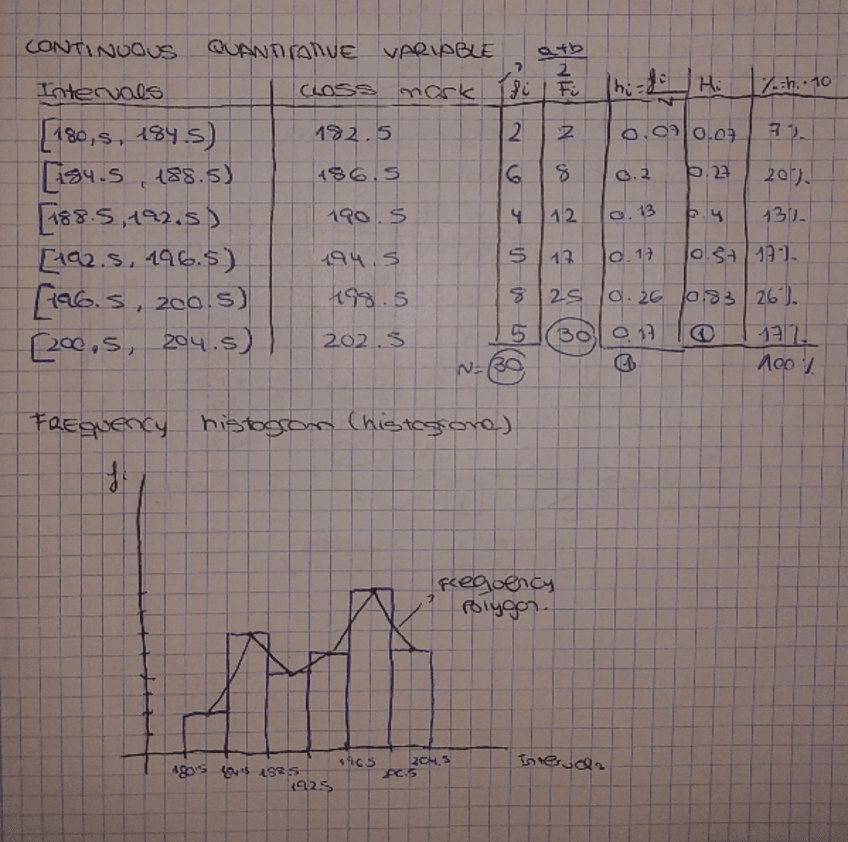 CONTINUOUS QUANTITATIVE VARIABLE a+b
2
Intervals class mark fi Fi hi=fi/N Hi %=hi·10
[180,5, 184.5) 182.5 2 2 0.07 0.07 7%
[184.5, 188.5) 186.5 6 8 0.2 0.27 20%
[188.5, 192.5) 190.5 4 12 0.13 0.4 13%
[192.5, 196.5) 194.5 5 17 0.17 0.57 17%
[196.5, 200.5) 198.5 8 25 0.26 0.83 26%
[200,5, 204.5) 202.5 5 30 0.17 1 17%
N=30 1 100%
Frequency histogram (histograma)
fi
frequency
polygon.
180.5 184.5 188.5 192.5 196.5 204.5 Intervals